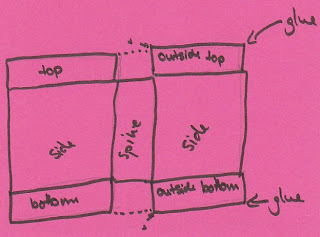 glue
top
outside top
side
spine
side
bottom
outside bottom
glue